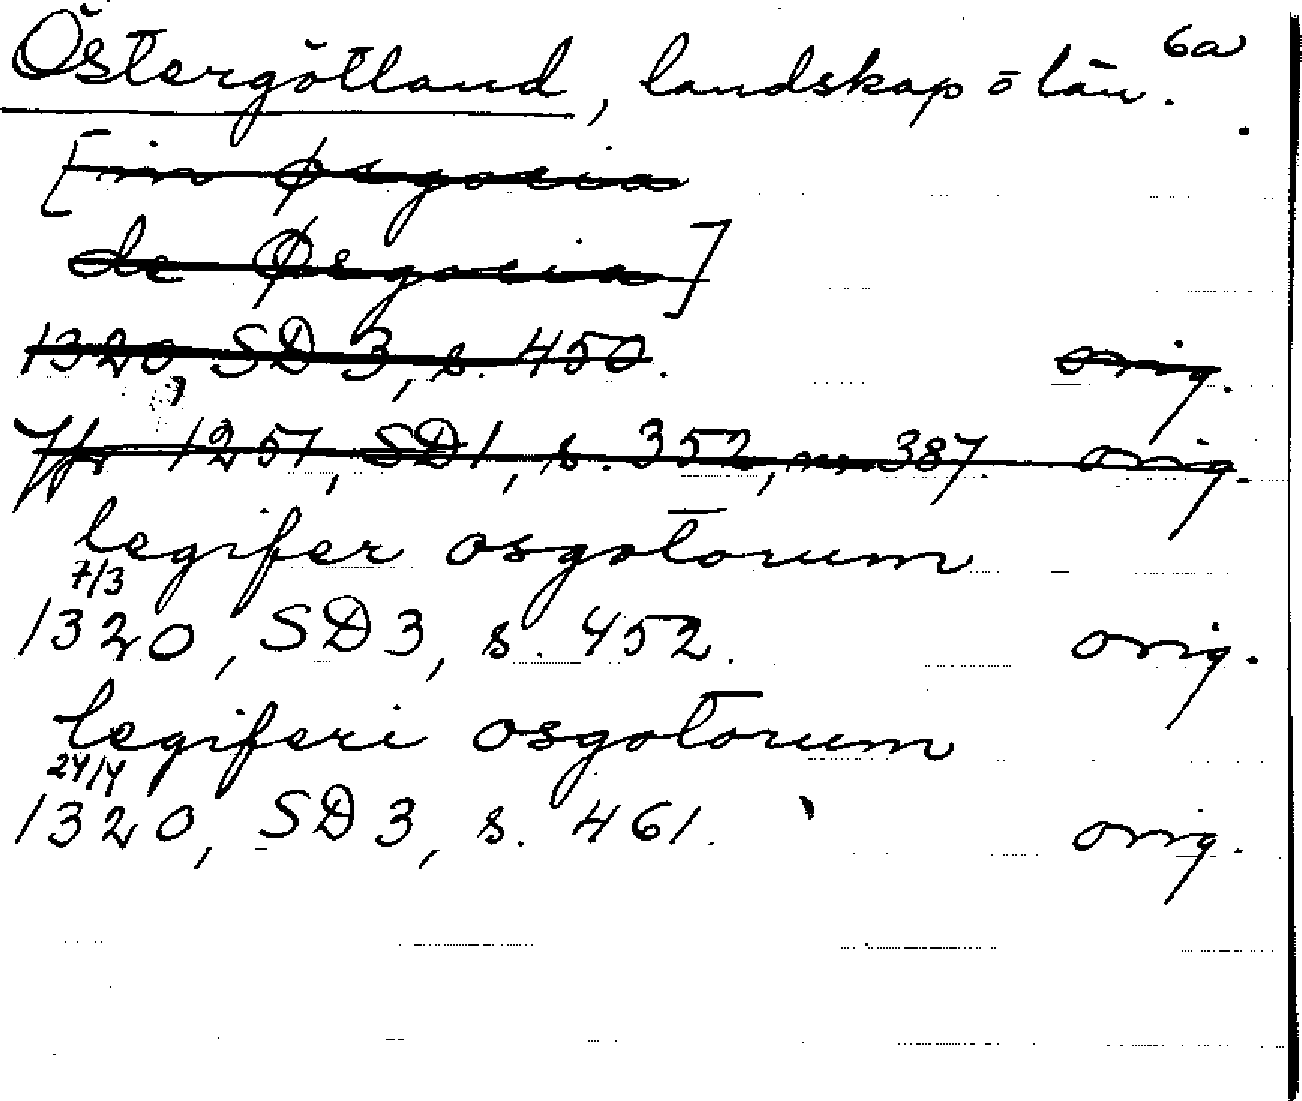 6a
Östergötland, landskap o län.
[in Øsgocia
de Øsgocia]
1320, SD 3, s. 450. orig.
Jfr 1257, SD1, s. 352, nr 387. orig.
legifer osgotorum
7/3
1320, SD3, s. 452. orig.
legiferi osgotorum
24/4
1320, SD3, s. 461. orig.